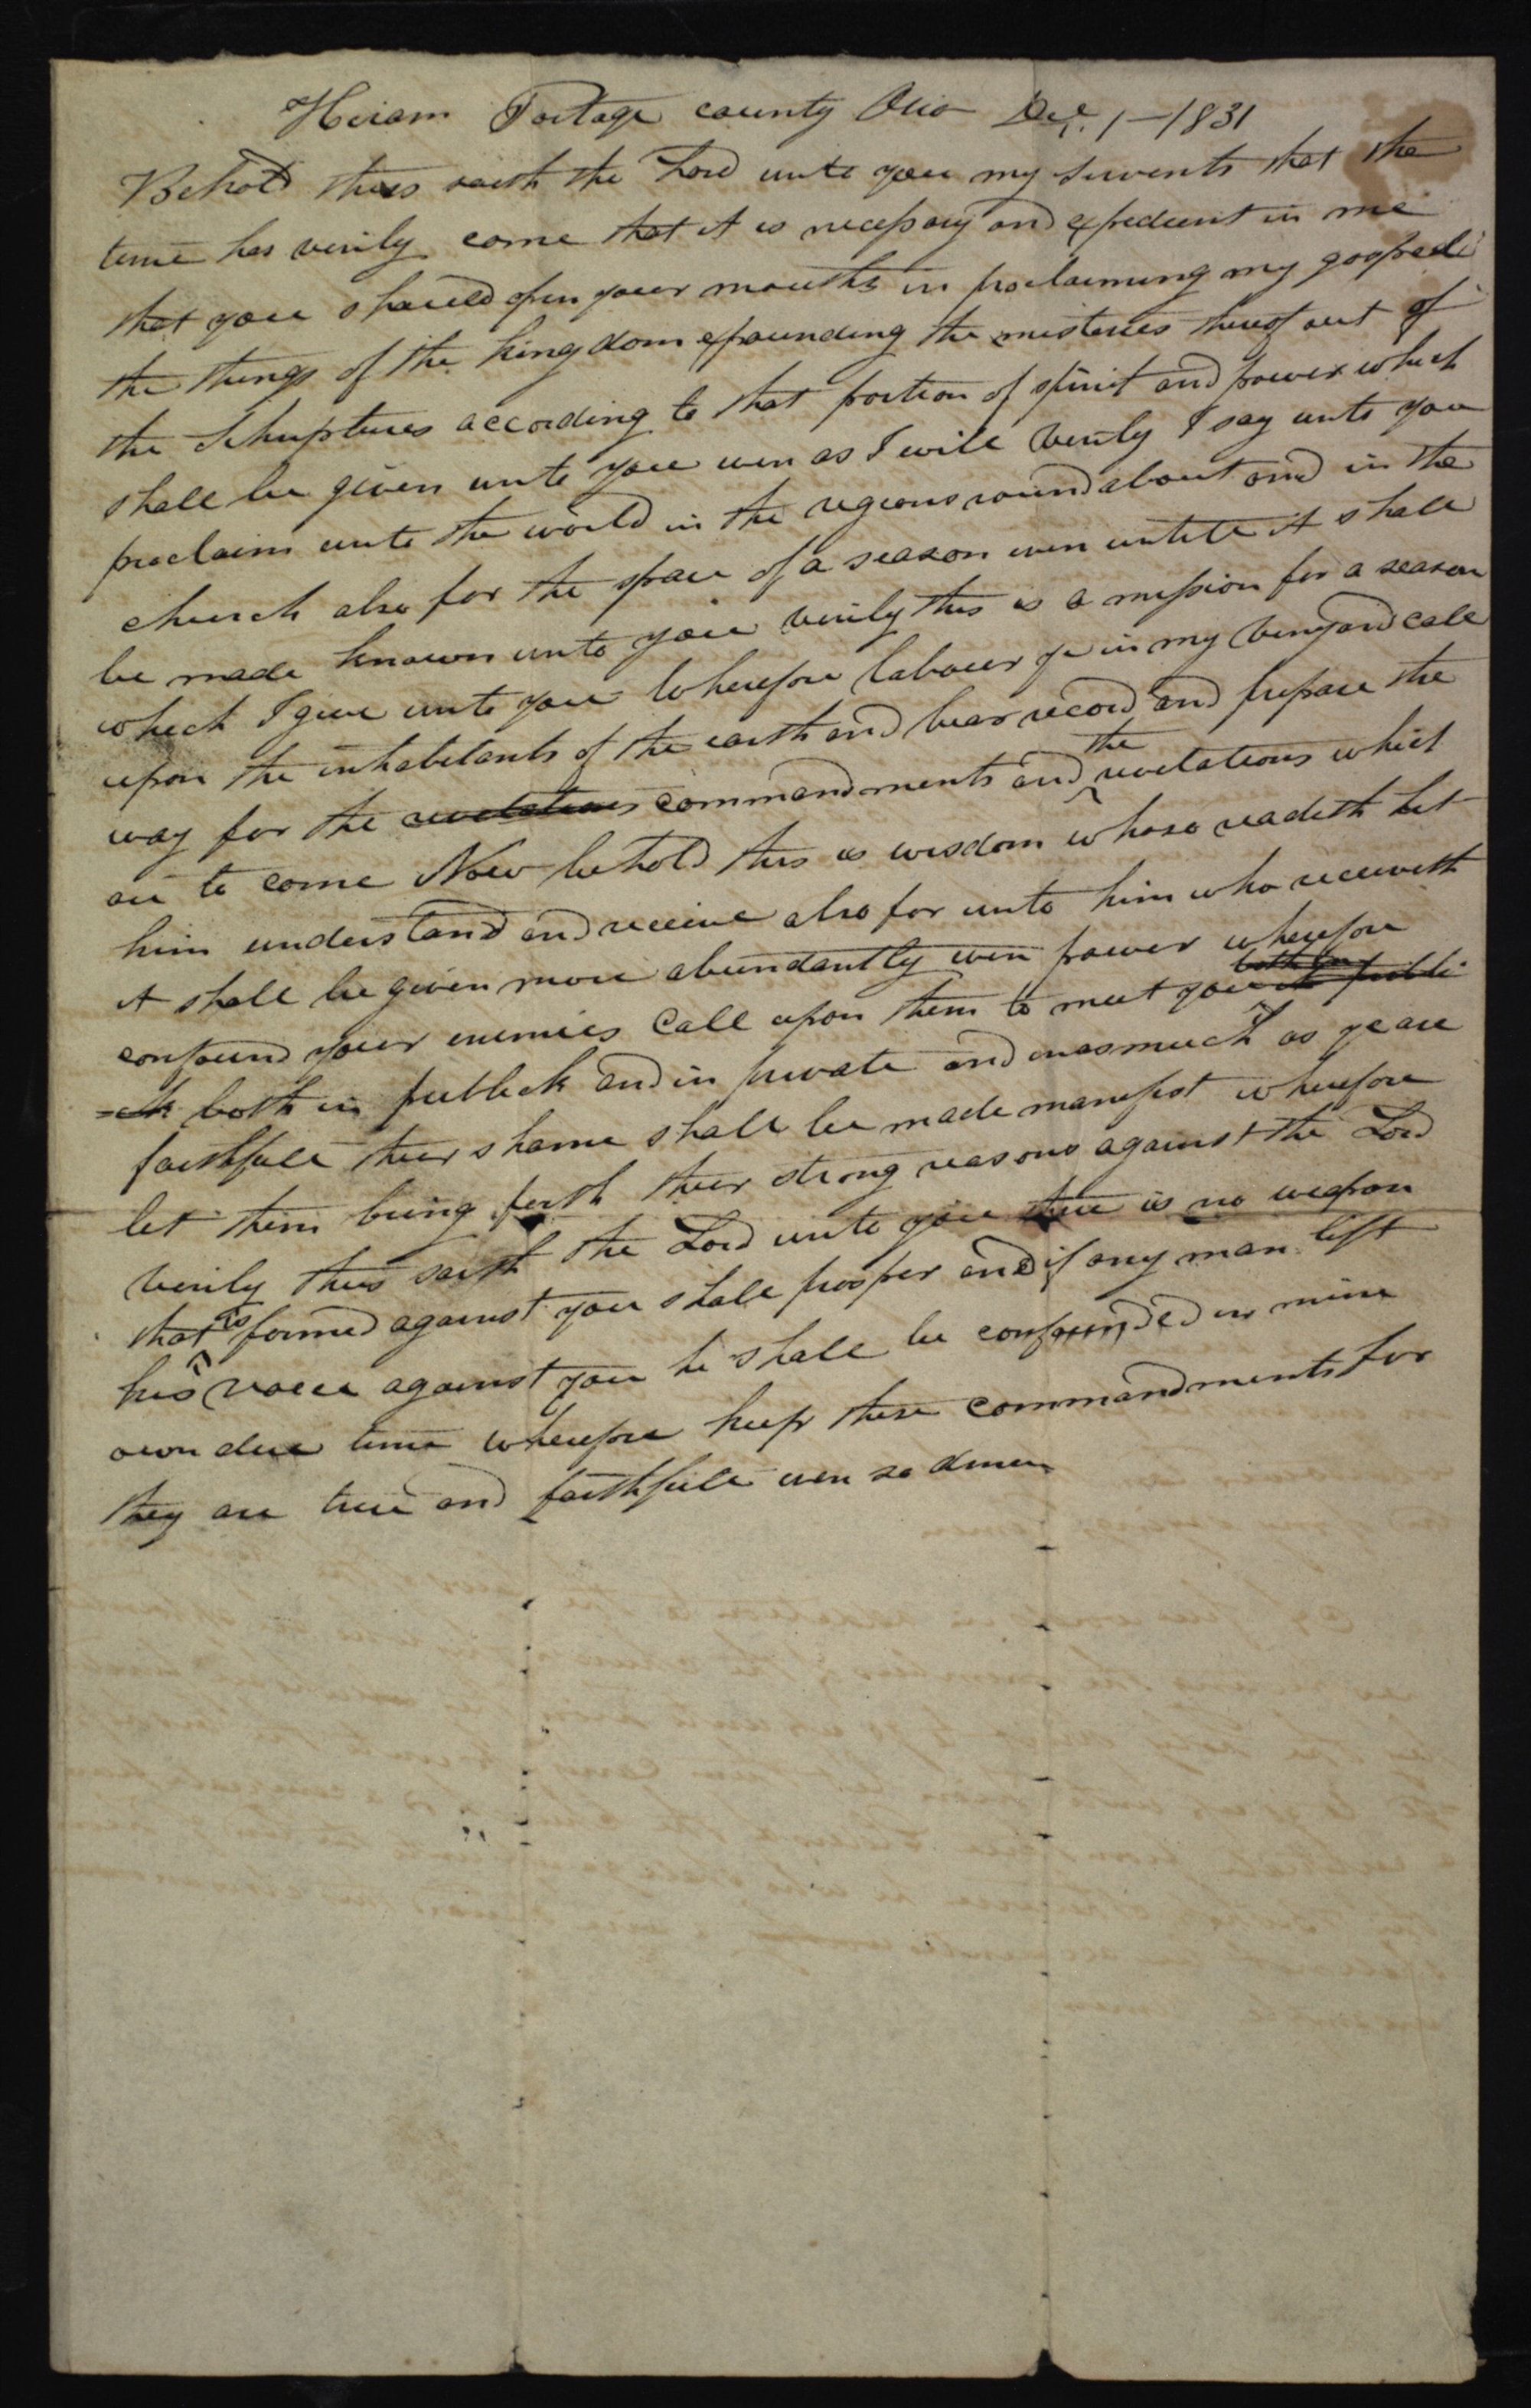 Hiram Portage county Ohio Dec. 1—1831
Behold thus saith the Lord unto you my servents that the
time has verily come that it is necessary and expedient in me
that you should open your mouths in proclaiming my goospel
the things of the kingdom expounding the misteries thereof out of
the Schriptures according to that portion of spirit and power which
shall be given unto you even as I will verily I say unto you
proclaim unto the world in the regions round about and in the
church also for the space of a season even untill it shall
be made known unto you verily this is a mission for a season
which I give unto you Wherefore labour ye in my vinyard call
upon the inhabitants of the earth and bear record and prepare the
way for the revelations commandments and the revelations which
are to come Now behold this is wisdom whoso readeth let
him understand and receive also for unto him who receiveth
it shall be given more abundantly even power wherefore
confound your enemies call upon them to meet you both in publi
-ck both in publick and in private and inasmuch as ye are
faithfull their shame shall be made manifest wherefore
let them bring forth their strong reasons against the Lord
verily thus saith the Lord unto you there is no weapon
that is formed against you shall prosper and if any man lift
his voice against you he shall be confounded in mine
own due time wherefore keep these commandments for
they are true and faithfull even so amen